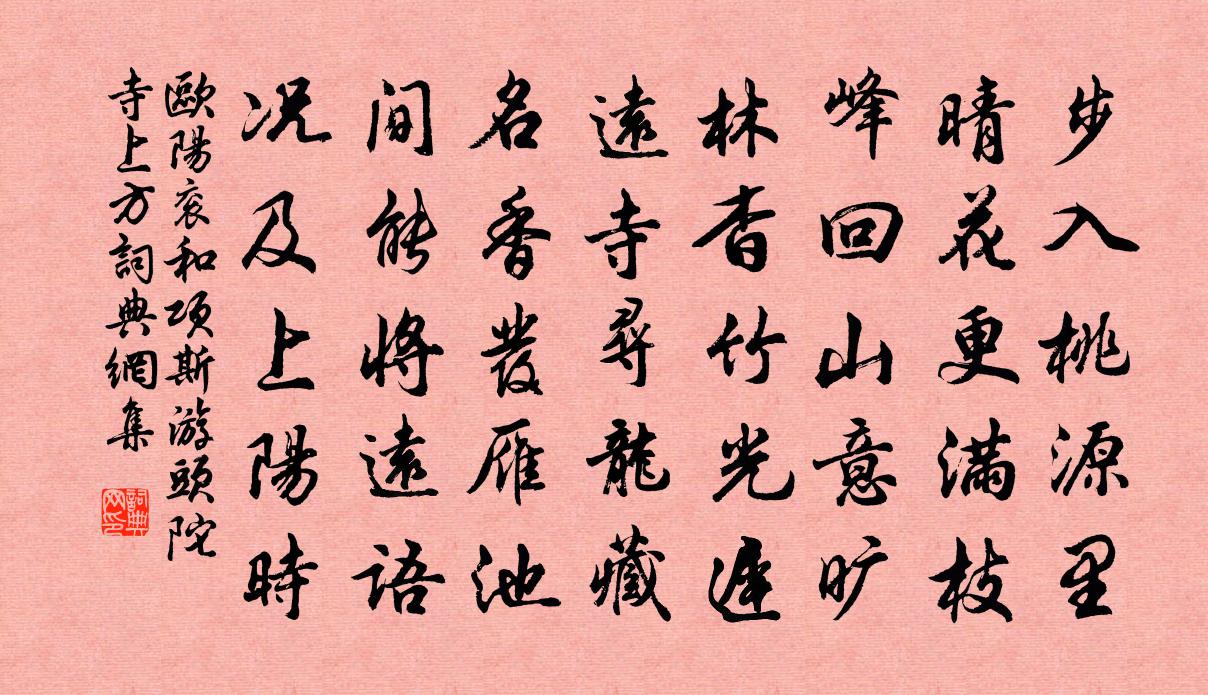 步入桃源里
晴花更满枝
峰回山意旷
林杳竹光遲
遠寺尋龍藏
名香發雁池
间能將遠语
况及上陽時
歐陽衮和项斯游頭陀
寺上方詞典網集
詞典网印